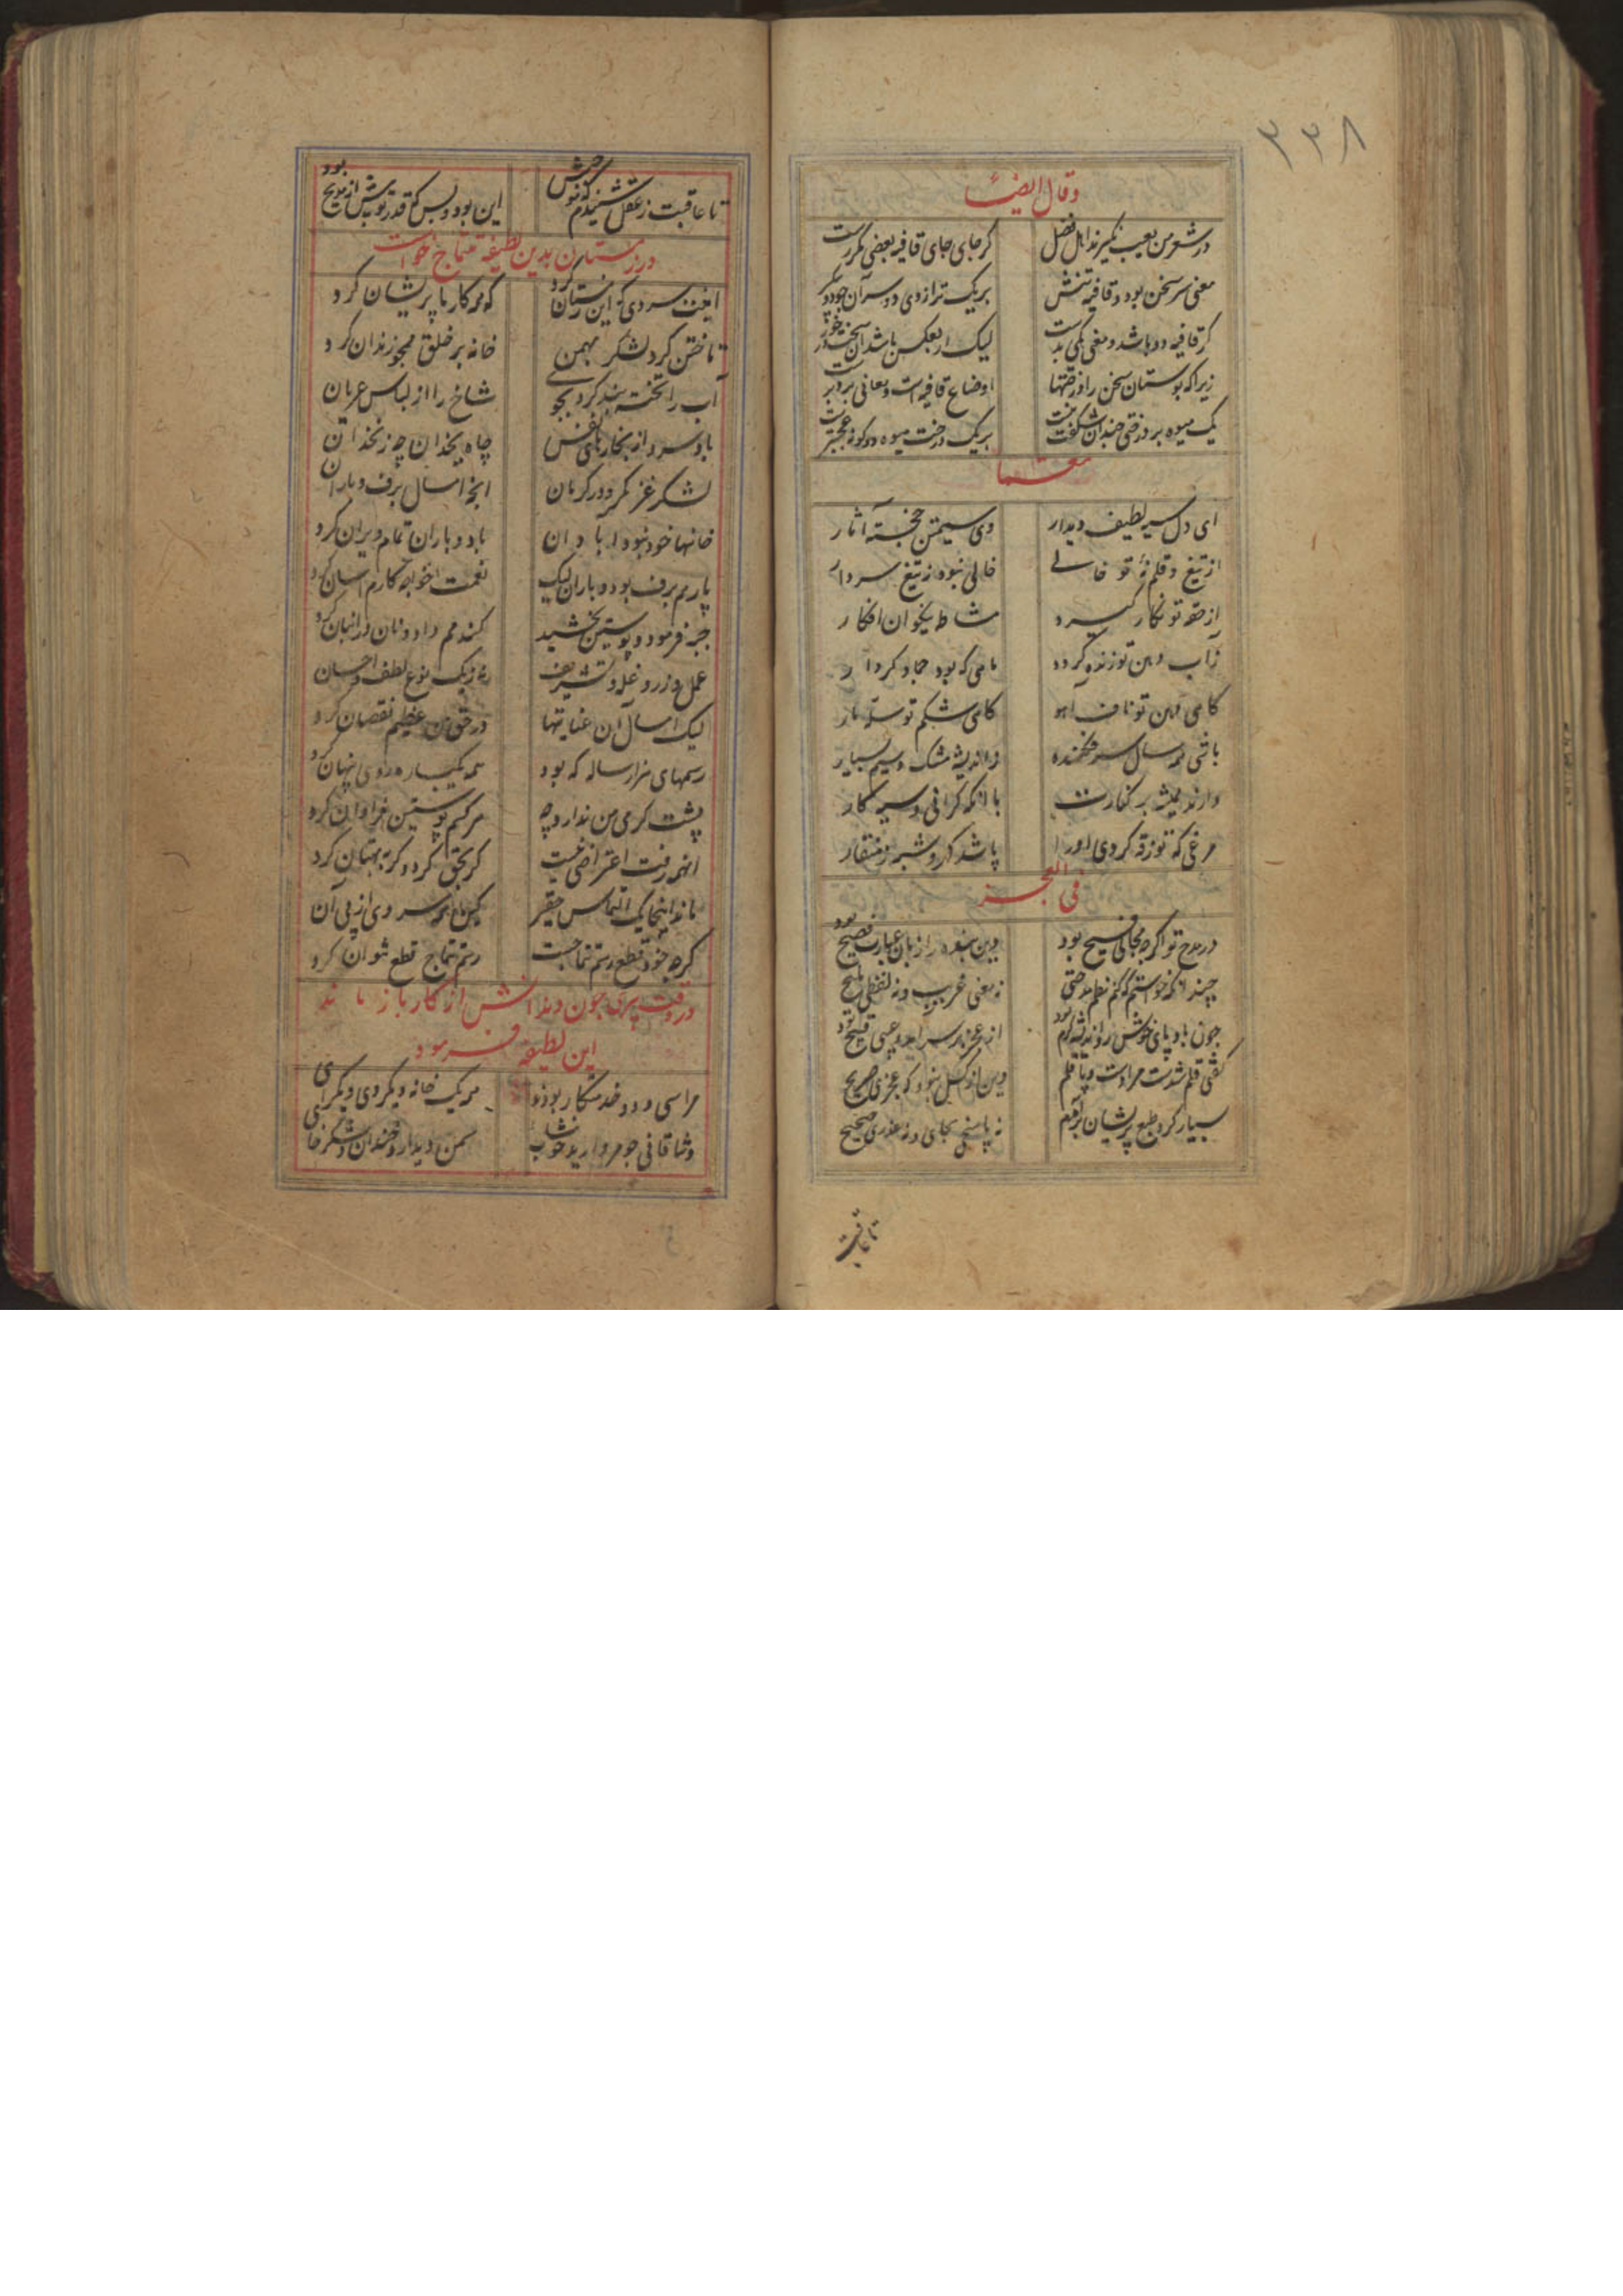 ۳۳۸
وقال ایضاً
در شعر من بعیب نگیرند اهل فضل کر جای جای قافیه بعضی مکررست
معنی سر سخن بود و قافیه تنش بر یک ترازوی دو سر آن
کر قافیه دو باشد و معنی یکی بدست لیک ار بعکس باشد آن سخت
زیرا که بوستان سخن را درختها اوضاع قافیه است و معانی برو برست
یک میوه بر درختی چندان شکفت نیست بر یک درخت میوه دوکونه عجبترست
معما
ای دل سیه لطیف دیدار وی سیمتن خجسته آثار
از تیغ و قلم نهٔ تو خالی خالی نبود ز تیغ سردار
از حقه تو نکار کیرد مشاطه نیکوان افکار
زآب دهن تو زنده کردد نامی که بود جماد کردار
کاهی دهن تو ناف آهو کاهی شکم تو
باشی همه سال سر فکنده ز اندیشهٔ مشک و سیم بسیار
دارند همیشه بر کنارت با انکه کرانی و سیه کار
مرغی که تو زقه کردی او را باشد کهر و شبه ز منقار
فی العجز
در مدح تو اکرچه مجالی فسیح بود وین بنده را زبان عبارت فصیح بود
چند انکه خواستم که کنم نظم مدحتی نه معنی غریب و نه لفظی ملیح بود
چون باد پای خوش رو اندیشه کرم از عجز بار سر آمد و عیبی قبیح بود
کفتی قلم شدست مرا دست و پا قلم وین از کسل نبود که عجزی صریح بود
بسیار کرد طبع پریشان بر آمدم نه پاسخی بجای و نه عذری صحیح
تا عاقبت
تا عاقبت ز عقل شنیدم که خوش خموش این بود و بس که قدر تو بیش از مدیح بود
در زمستان بدین لطیفه تتماج خواست
اینت سردی که این زمستان کرد که همه کار ما پریشان کرد
تاختن کرد لشکر بهمن خانه بر خلق همچو زندان کرد
آب را تخته بند کرد بجوی شاخ را از لباس عریان
باد سرد از بخارهای نفس چاه یخدان چه زنخدان
لشکر غز نکرد در کرمان انچه امسال برف و باران
خانها خود نبود ابادان باد و باران تمام ویران کرد
پار هم برف بود و باران لیک نعمت خواجه کارم آسان کرد
جبه فرمود و پوستین بخشید کندمم داد و نان در انبان کرد
عمل و زر و غله و تشریف نه ز یک نوع لطف و احسان
لیک امسال آن عنایتها در حق من عظیم نقصان کرد
رسمهای هزار ساله که بود همه یکباره روی پنهان کرد
پشت کرمی من ندارد چه هر کسم پوستین فراوان کرد
انهمه رفت اعتراضی نیست کر بحق کرد و کر بهتان کرد
ماند اینجا یک التماس حقیر کین همه سردی از پی آن
کرچه خود قطع رسم تتماجست رسم تتماج قطع نتوان کرد
در وقت پیری چون دندانش از کار باز ماند
این لطیفه فرمود
مرا سی و دو خدمتکار بودند هر یک خانه دیکر وی دیکرای
وشاقانی جو مروارید خوشاب سمن دیدار و خندان و شکرخای